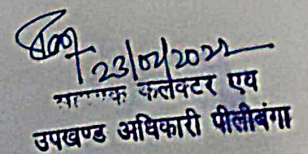 23/02/2022
कलेक्टर एवं
उपखण्ड अधिकारी पीलीबंगा